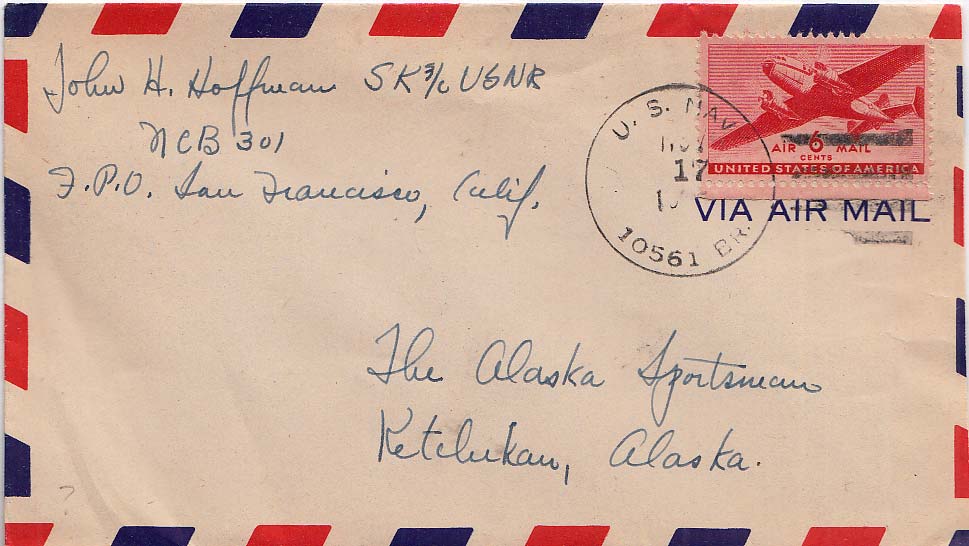 John H. Hoffman SK 3/c USNR
NCB 301
F.P.O. San Francisco, Calif.
U. S. NAV
NOV
17
10561 BR.
AIR 6 MAIL
CENTS
UNITED STATES OF AMERICA
VIA AIR MAIL
The Alaska Sportsman
Ketchikan, Alaska.